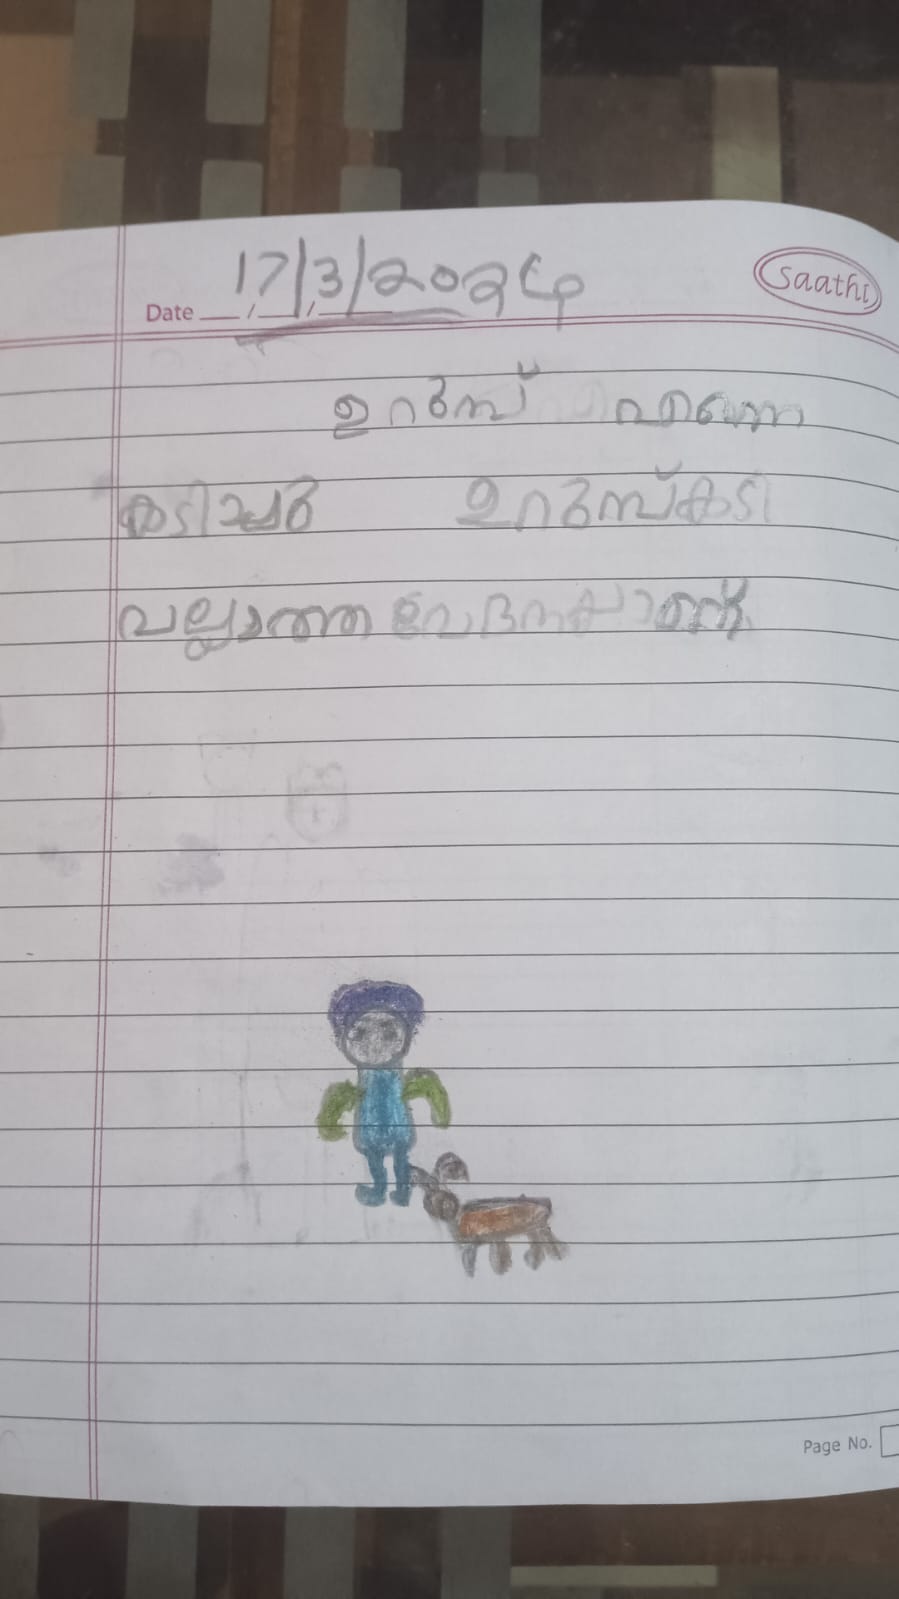 17/3/2024
Saathi
Date
ഉറുമ്പ് എന്നെ
കടിച്ചു ഉറുമ്പ്കടി
വല്ലാത്ത വേദനയാണ്
Page No.